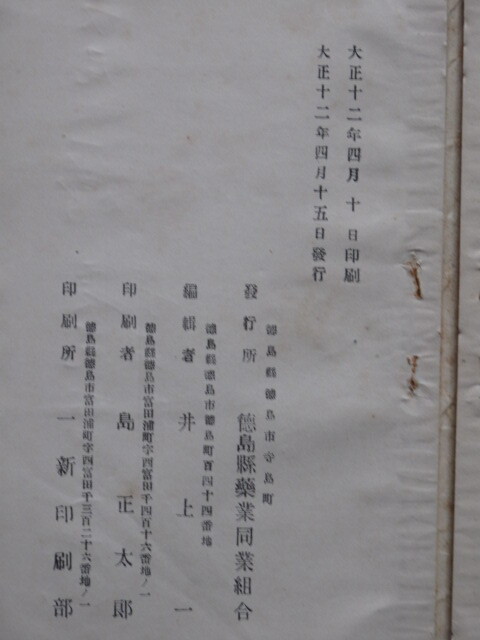 大正十二年四月十日印刷
大正十二年四月十五日發行
徳島縣徳島市寺島町
發行所 徳島縣藥業同業組合
徳島縣徳島市徳島町百四十四番地
編輯者 井上一
徳島縣徳島市富田浦町字四富田千四百十六番地ノ一
印刷者 島正太郎
徳島縣徳島市富田浦町字四富田千三百二十六番地ノ一
印刷所 一新印刷部